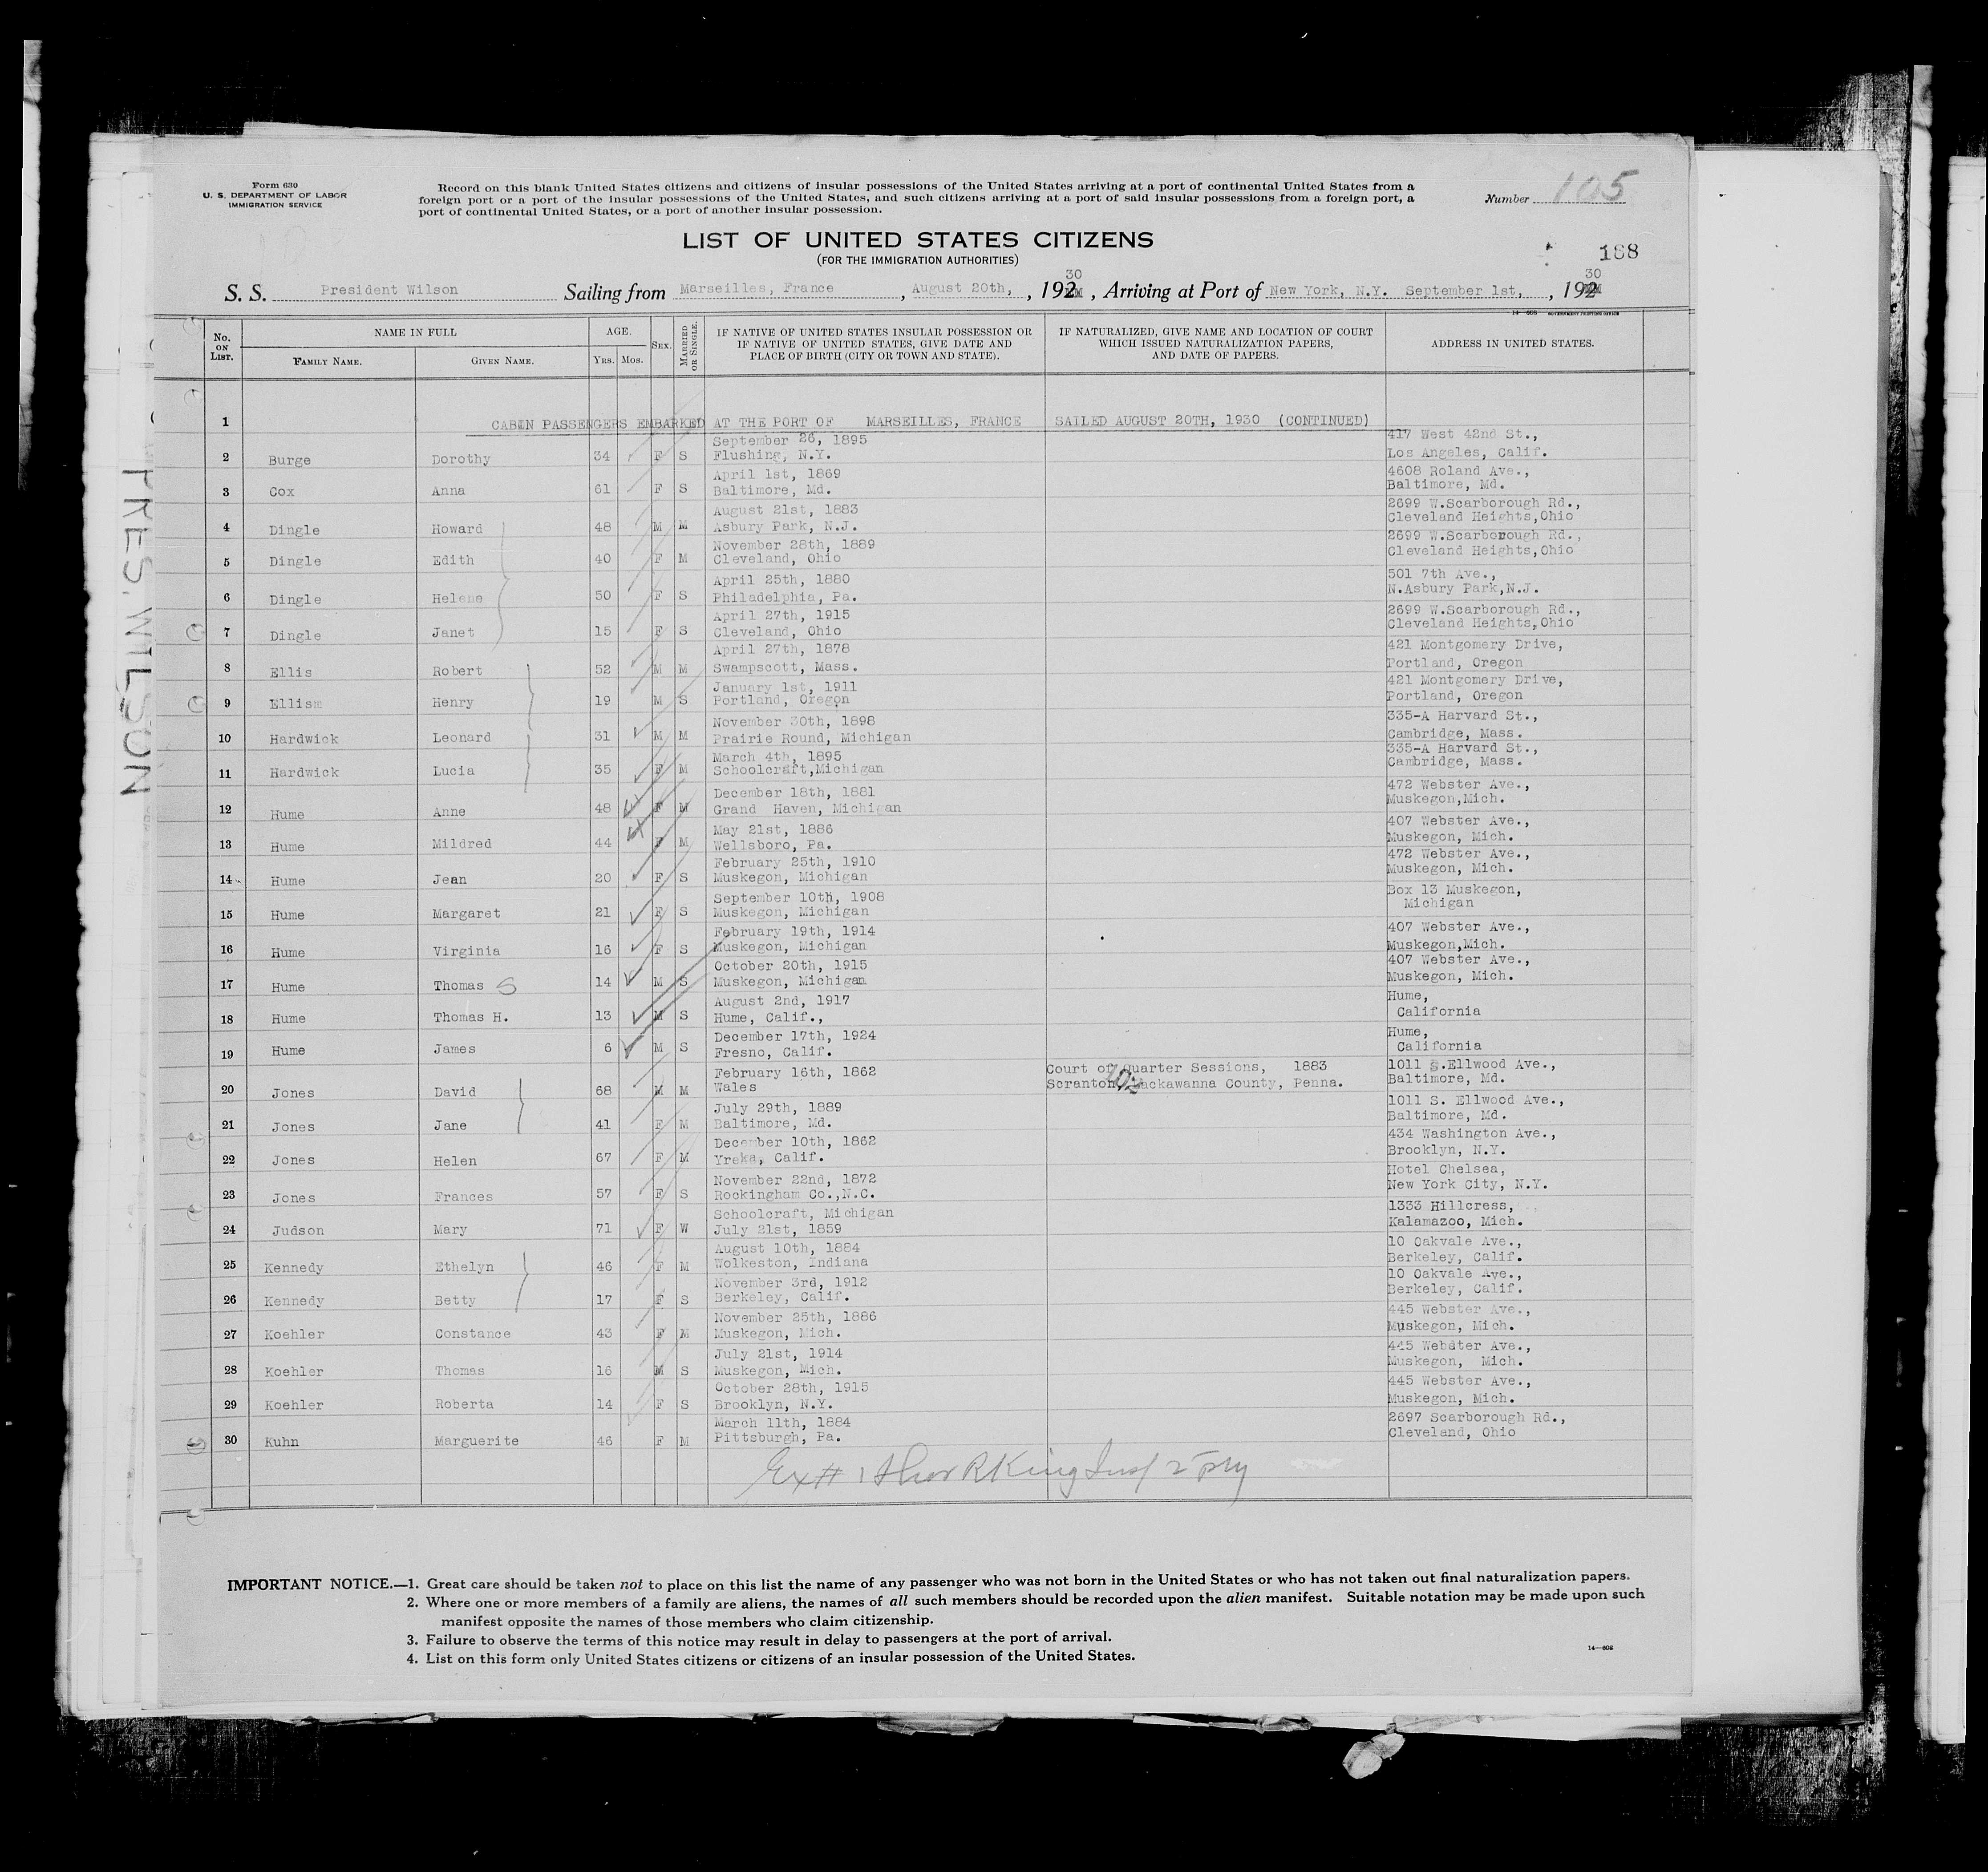 Form 630
U. S. DEPARTMENT OF LABOR
IMMIGRATION SERVICE
Record on this blank United States citizens and citizens of insular possessions of the United States arriving at a port of continental United States from a
foreign port or a port of the insular possessions of the United States, and such citizens arriving at a port of said insular possessions from a foreign port, a
port of continental United States, or a port of another insular possession.
Number 105
LIST OF UNITED STATES CITIZENS
(FOR THE IMMIGRATION AUTHORITIES)
188
S. S. President Wilson Sailing from Marseilles, France, August 20th, , 192 30 , Arriving at Port of New York, N.Y. September 1st, , 192 30
14—608 GOVERNMENT PRINTING OFFICE
No. ON LIST. NAME IN FULL FAMILY NAME. GIVEN NAME. AGE. YRS. MOS. SEX. MARRIED OR SINGLE. IF NATIVE OF UNITED STATES INSULAR POSSESSION OR IF NATIVE OF UNITED STATES, GIVE DATE AND PLACE OF BIRTH (CITY OR TOWN AND STATE). IF NATURALIZED, GIVE NAME AND LOCATION OF COURT WHICH ISSUED NATURALIZATION PAPERS, AND DATE OF PAPERS. ADDRESS IN UNITED STATES.
1 CABIN PASSENGERS EMBARKED AT THE PORT OF MARSEILLES, FRANCE SAILED AUGUST 20TH, 1930 (CONTINUED)
2 Burge Dorothy 34 F S September 26, 1895 Flushing, N.Y. 417 West 42nd St., Los Angeles, Calif.
3 Cox Anna 61 F S April 1st, 1869 Baltimore, Md. 4608 Roland Ave., Baltimore, Md.
4 Dingle Howard 48 M M August 21st, 1883 Asbury Park, N.J. 2699 W.Scarborough Rd., Cleveland Heights,Ohio
5 Dingle Edith 40 F M November 28th, 1889 Cleveland, Ohio 2699 W.Scarborough Rd., Cleveland Heights,Ohio
6 Dingle Helene 50 F S April 25th, 1880 Philadelphia, Pa. 501 7th Ave., N.Asbury Park,N.J.
7 Dingle Janet 15 F S April 27th, 1915 Cleveland, Ohio 2699 W.Scarborough Rd., Cleveland Heights,Ohio
8 Ellis Robert 52 M M April 27th, 1878 Swampscott, Mass. 421 Montgomery Drive, Portland, Oregon
9 Ellism Henry 19 M S January 1st, 1911 Portland, Oregon 421 Montgomery Drive, Portland, Oregon
10 Hardwick Leonard 31 M M November 30th, 1898 Prairie Round, Michigan 335-A Harvard St., Cambridge, Mass.
11 Hardwick Lucia 35 F M March 4th, 1895 Schoolcraft,Michigan 335-A Harvard St., Cambridge, Mass.
12 Hume Anne 48 F M December 18th, 1881 Grand Haven, Michigan 472 Webster Ave., Muskegon,Mich.
13 Hume Mildred 44 F M May 21st, 1886 Wellsboro, Pa. 407 Webster Ave., Muskegon, Mich.
14 Hume Jean 20 F S February 25th, 1910 Muskegon, Michigan 472 Webster Ave., Muskegon, Mich.
15 Hume Margaret 21 F S September 10th, 1908 Muskegon, Michigan Box 13 Muskegon, Michigan
16 Hume Virginia 16 F S February 19th, 1914 Muskegon, Michigan 407 Webster Ave., Muskegon,Mich.
17 Hume Thomas S 14 M S October 20th, 1915 Muskegon, Michigan 407 Webster Ave., Muskegon, Mich.
18 Hume Thomas H. 13 M S August 2nd, 1917 Hume, Calif., Hume, California
19 Hume James 6 M S December 17th, 1924 Fresno, Calif. Hume, California
20 Jones David 68 M M February 16th, 1862 Wales Court of Quarter Sessions, 1883 Scranton, Lackawanna County, Penna. 1011 S.Ellwood Ave., Baltimore, Md.
21 Jones Jane 41 F M July 29th, 1889 Baltimore, Md. 1011 S. Ellwood Ave., Baltimore, Md.
22 Jones Helen 67 F M December 10th, 1862 Yreka, Calif. 434 Washington Ave., Brooklyn, N.Y.
23 Jones Frances 57 F S November 22nd, 1872 Rockingham Co.,N.C. Hotel Chelsea, New York City, N.Y.
24 Judson Mary 71 F W Schoolcraft, Michigan July 21st, 1859 1333 Hillcress, Kalamazoo, Mich.
25 Kennedy Ethelyn 46 F M August 10th, 1884 Wolkeston, Indiana 10 Oakvale Ave., Berkeley, Calif.
26 Kennedy Betty 17 F S November 3rd, 1912 Berkeley, Calif. 10 Oakvale Ave., Berkeley, Calif.
27 Koehler Constance 43 F M November 25th, 1886 Muskegon, Mich. 445 Webster Ave., Muskegon, Mich.
28 Koehler Thomas 16 M S July 21st, 1914 Muskegon, Mich. 445 Webster Ave., Muskegon, Mich.
29 Koehler Roberta 14 F S October 28th, 1915 Brooklyn, N.Y. 445 Webster Ave., Muskegon, Mich.
30 Kuhn Marguerite 46 F M March 11th, 1884 Pittsburgh, Pa. 2697 Scarborough Rd., Cleveland, Ohio
IMPORTANT NOTICE.—1. Great care should be taken not to place on this list the name of any passenger who was not born in the United States or who has not taken out final naturalization papers.
2. Where one or more members of a family are aliens, the names of all such members should be recorded upon the alien manifest. Suitable notation may be made upon such
manifest opposite the names of those members who claim citizenship.
3. Failure to observe the terms of this notice may result in delay to passengers at the port of arrival.
4. List on this form only United States citizens or citizens of an insular possession of the United States.
14—608
PRES. WILSON